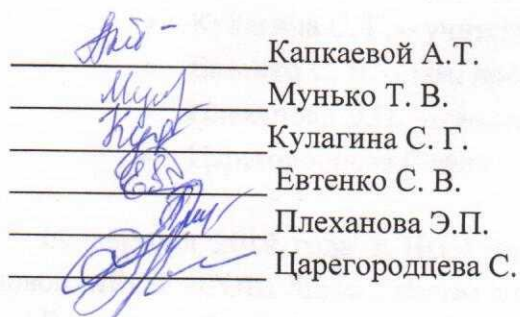 Капкаевой А.Т.
Мунько Т. В.
Кулагина С. Г.
Евтенко С. В.
Плеханова Э.П.
Царегородцева С.